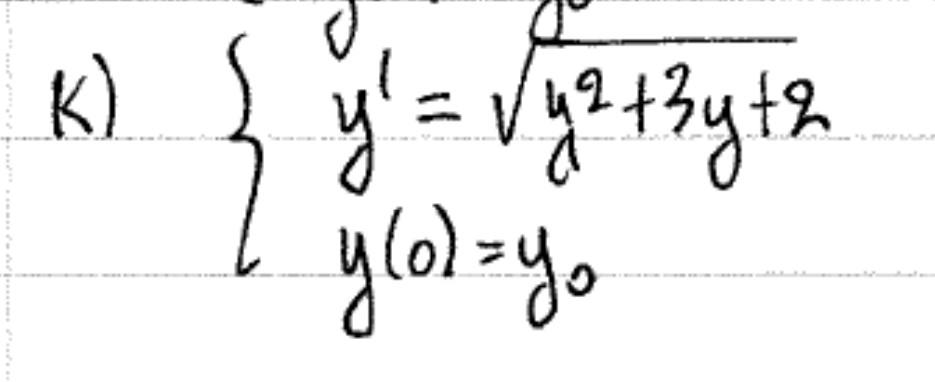 K) { y' = √(y²+3y+2)
y(0) = y₀